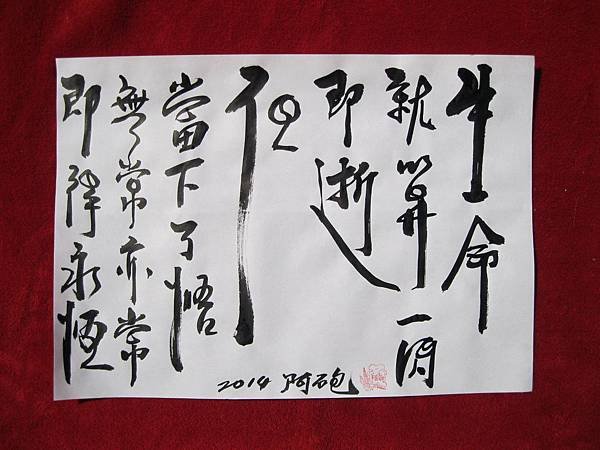 生命
就算一閃
即逝
但
當下了悟
無常亦常
即降永恆
2014 阿砲